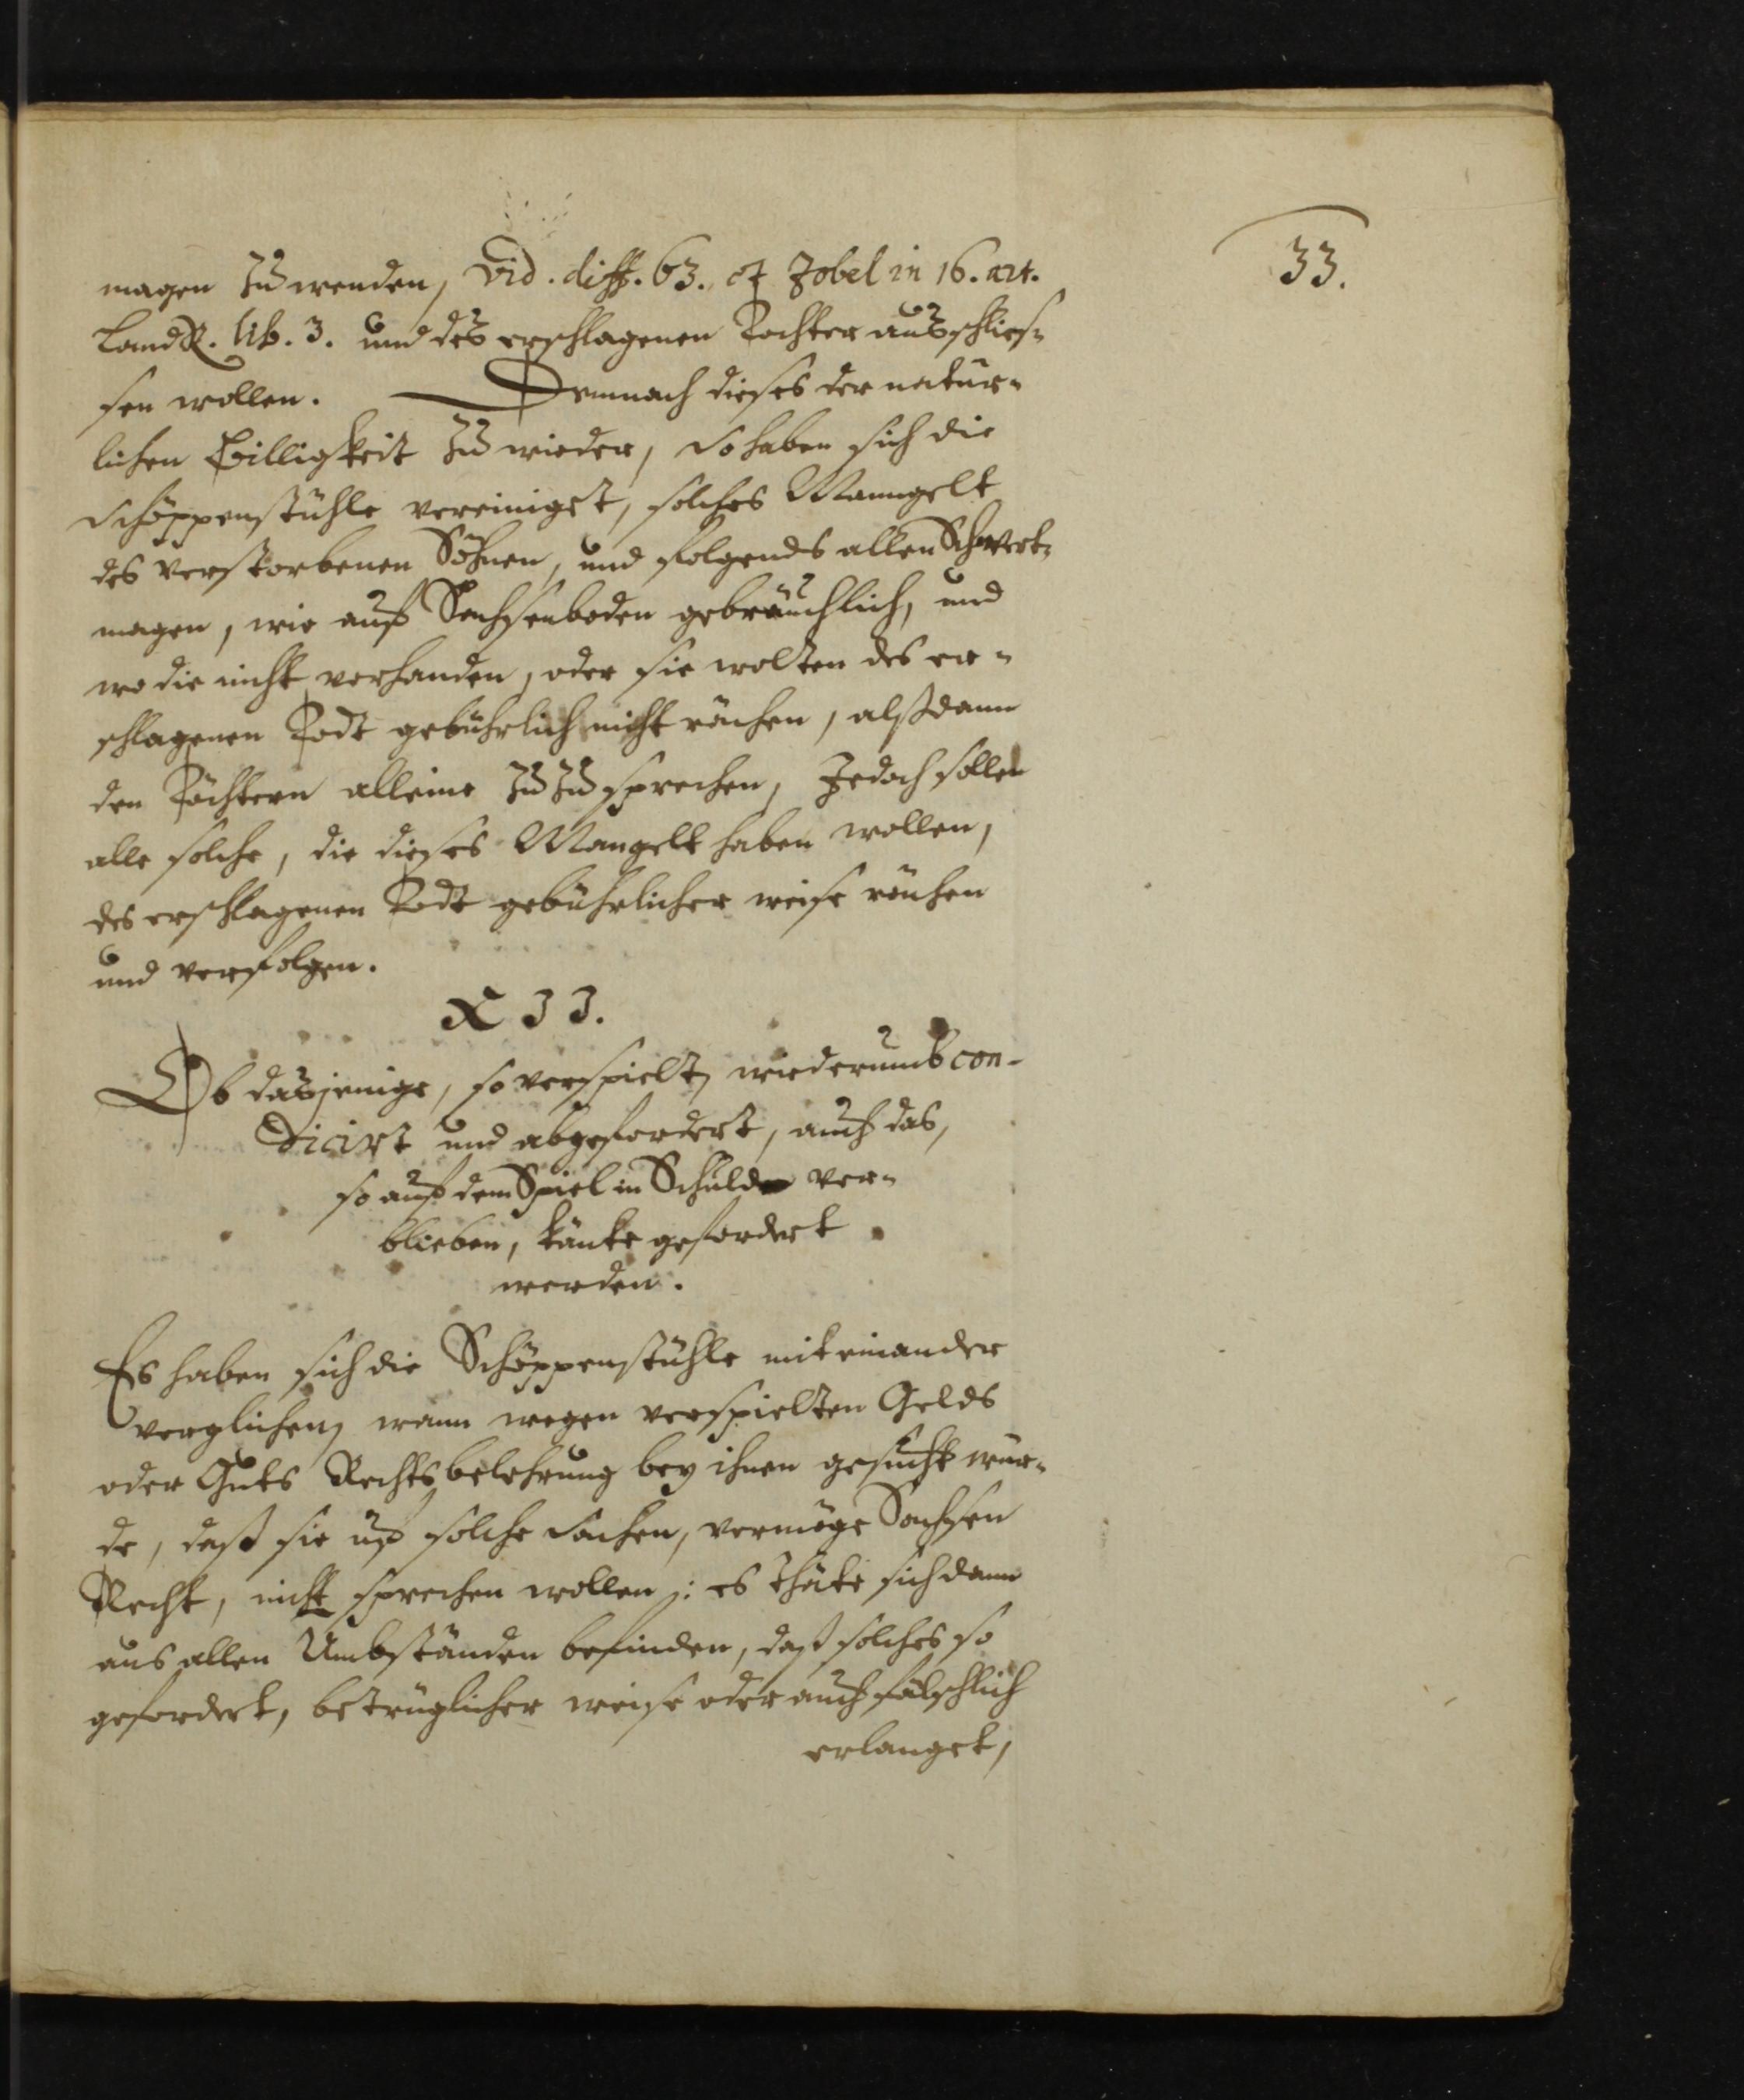 33.
magen zu wenden, Vid. diff. 63. et Zobel in 16. art.
LandR. lib. 3. und des erschlagenen Tochter ausschlies-
sen wollen. Demnach dieses der natur-
lichen Billigkeit zu wieder, so haben sich die
Schöppenstühle vereiniget, solches Manngelt
des verstorbenen Söhnen, und folgends allen Schwert-
magen, wie auf Sachsenboden gebräuchlich, und
wo die nicht verhanden, oder sie wolten des er-
schlagenen Todt gebührlich nicht rächen, alßdann
den Töchtern alleine zu zusprechen, Jedoch sollen
alle solche, die dieses Mangelt haben wollen,
des erschlagenen Todt gebührlicher weise rächen
und verfolgen.
33.
Ob dasjenige, so verspielt, wiederumb con-
dicirt und abgefordert, auch das,
so auf dem Spiel in Schulden ver-
blieben, könte gefordert
werden.
Es haben sich die Schöppenstühle miteinander
verglichen, wann wegen verspielten Gelds
oder Guts Rechtsbelehrung bey ihnen gesucht wur-
de, daß sie uf solche sachen, vermöge Sachsen
Recht, nicht sprechen wollen: es thäte sich dann
aus allen Umbständen befinden, daß solches so
gefordert, betrüglicher weise oder auch fälschlich
erlanget,